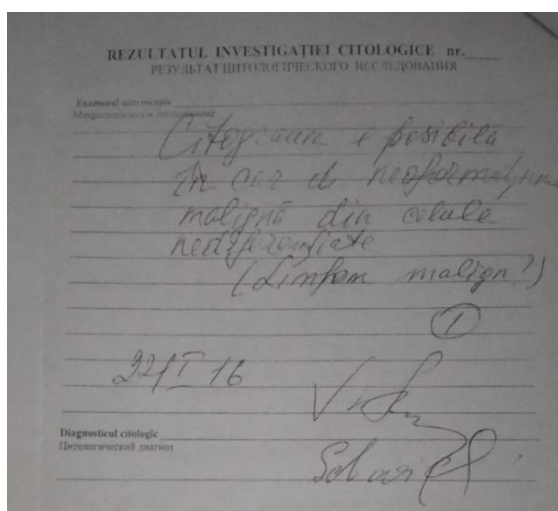 REZULTATUL INVESTIGAȚIEI CITOLOGICE nr.
РЕЗУЛЬТАТ ЦИТОЛОГИЧЕСКОГО ИССЛЕДОВАНИЯ
Examenul microscopic
Микроскопическое исследование
Citograma e posibilă
în caz de neoformațiune
malignă din celule
nediferențiate
(Limfom malign?)
1
22/I 16
Diagnosticul citologic
Цитологический диагноз